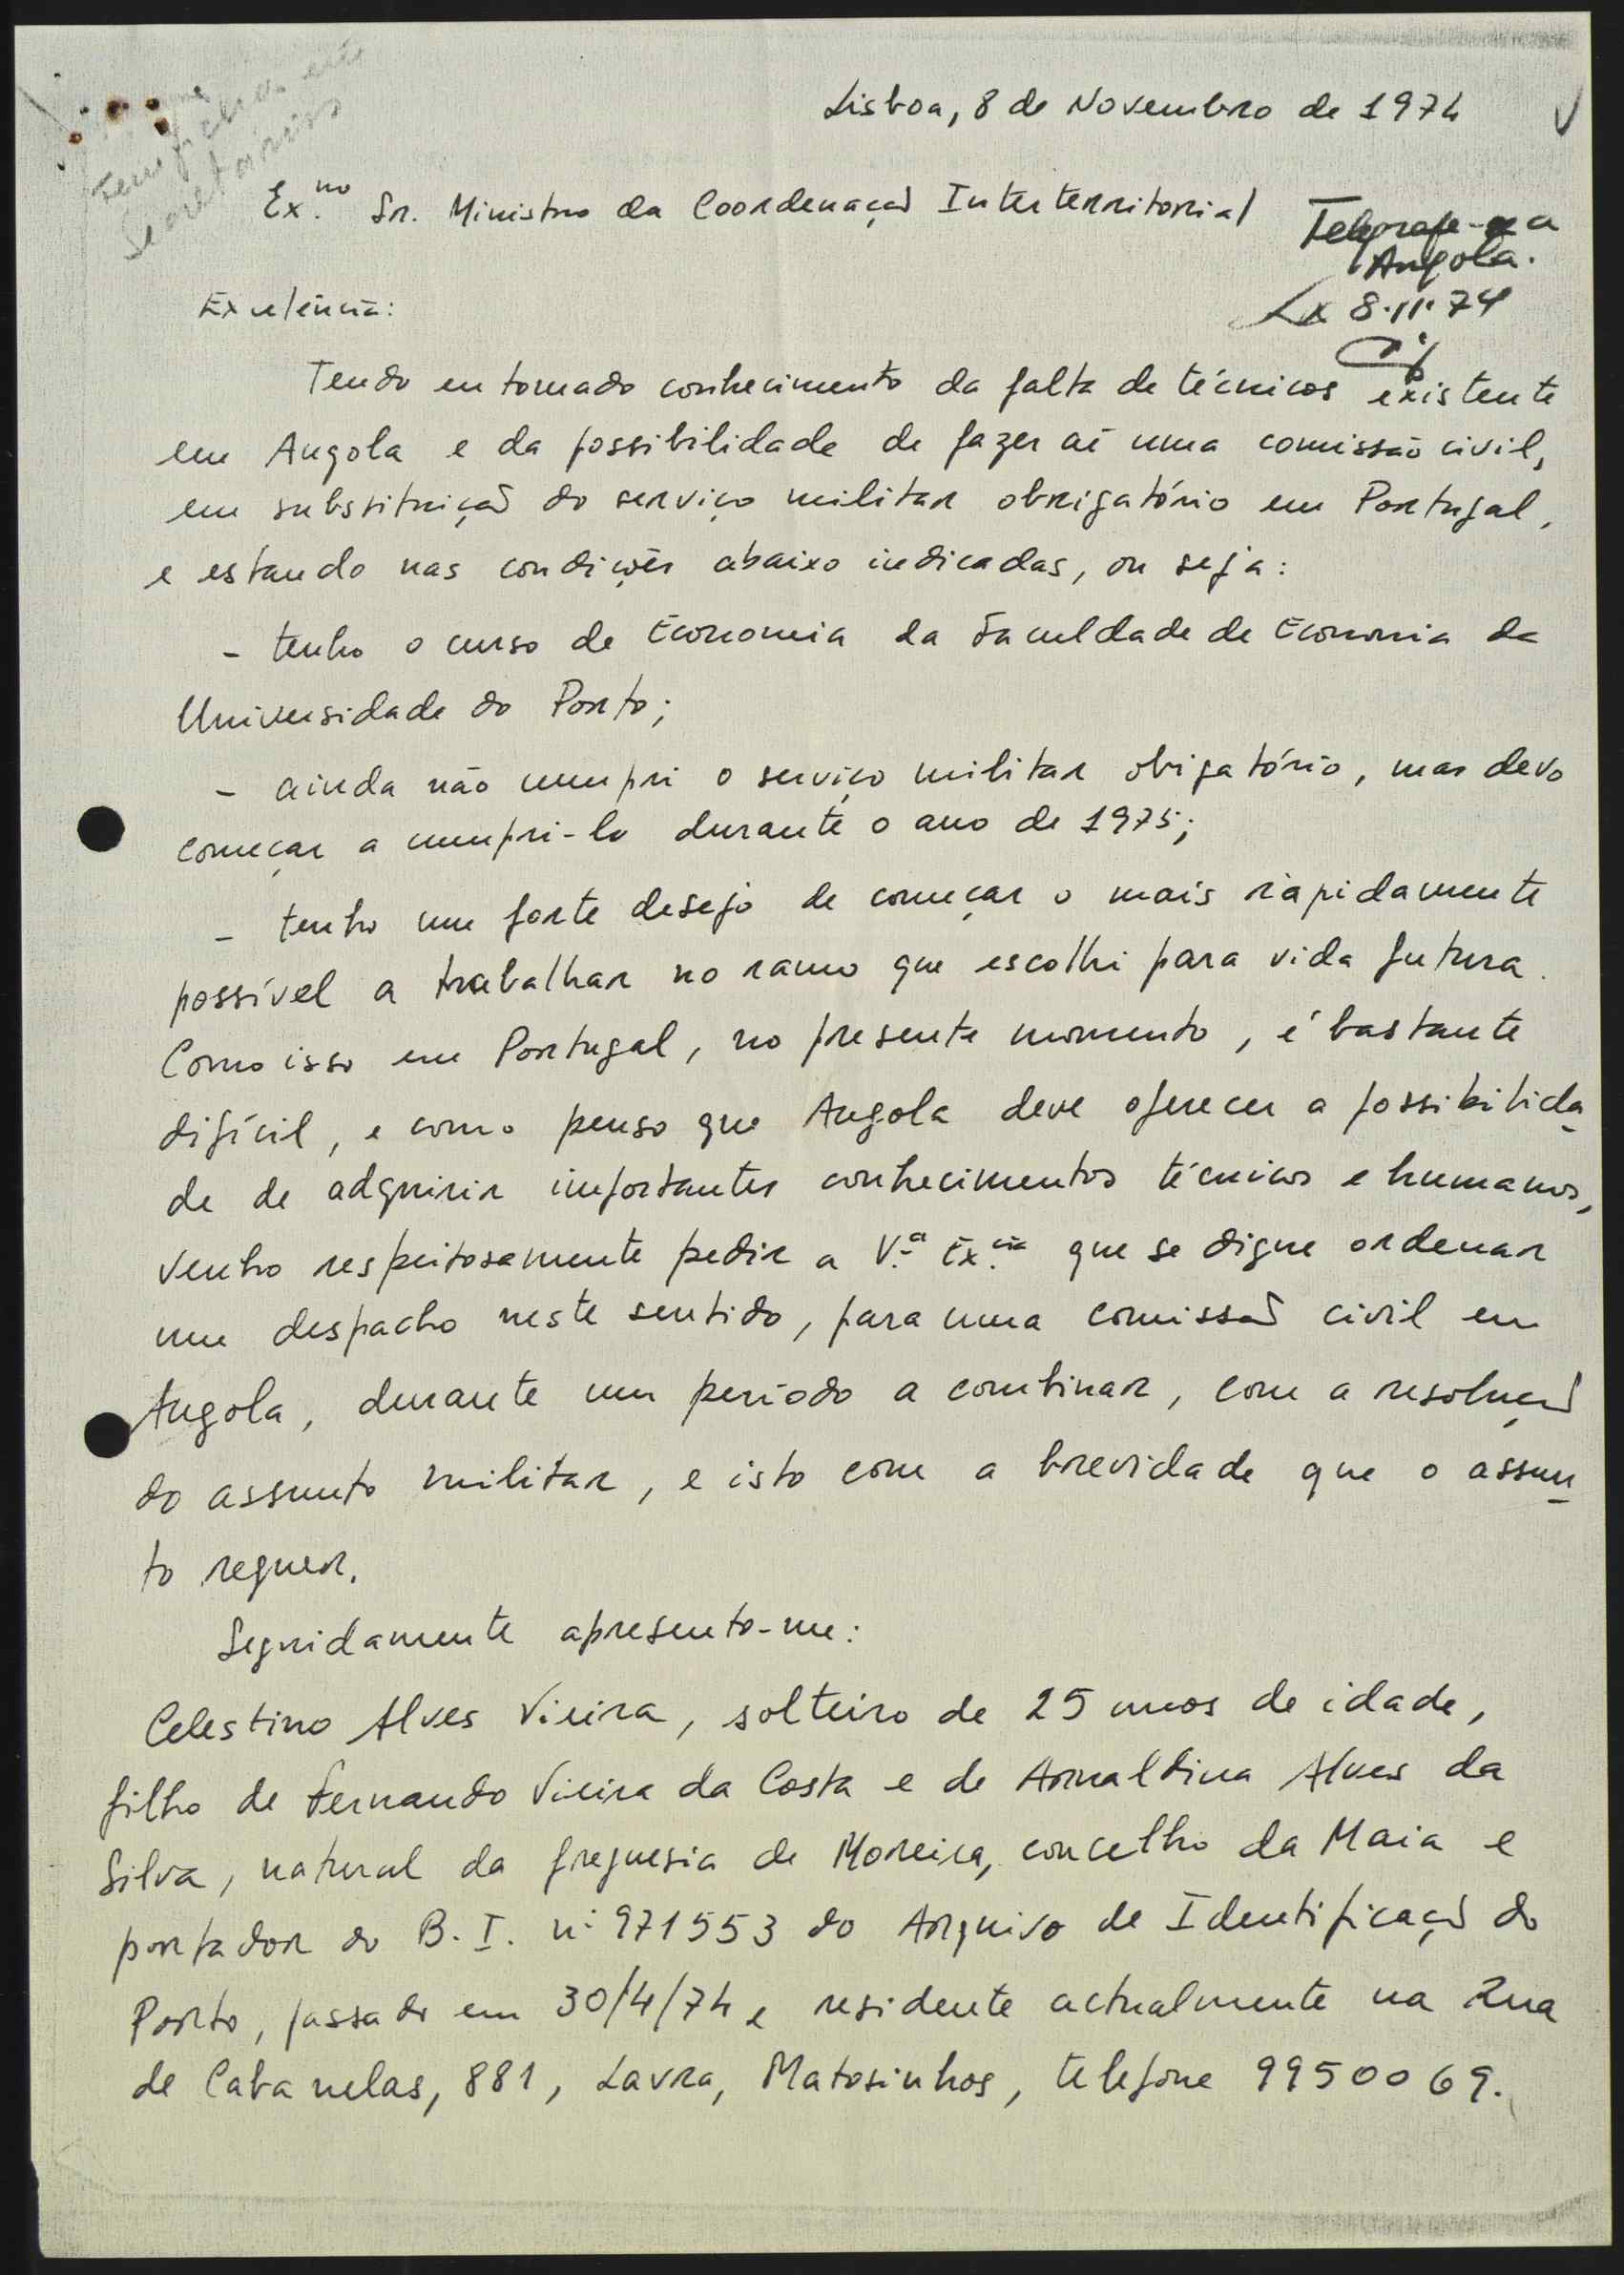 Tem ficha em
Secretariado
Lisboa, 8 de Novembro de 1974
Ex.mo Sr. Ministro da Coordenação Interterritorial
Telegrafe-se a
Angola.
Lx 8.11.74
Excelência:
Tendo eu tomado conhecimento da falta de técnicos existente
em Angola e da possibilidade de fazer aí uma comissão civil,
em subssituição do serviço militar obrigatório em Portugal,
e estando nas condições abaixo indicadas, ou seja:
- tenho o curso de Economia da Faculdade de Economia da
Universidade do Porto;
- ainda não cumpri o serviço militar obigatório, mas devo
começar a cumpri-lo durante o ano de 1975;
- tenho um forte desejo de começar o mais ràpidamente
possível a trabalhar no ramo que escolhi para vida futura.
Como isso em Portugal, no presente momento, é bastante
difícil, e como penso que Angola deve oferecer a possibilida-
de de adquirir importantes conhecimentos técnicos e humanos,
venho respeitosamente pedir a V.ª Ex.cia que se digne ordenar
um despacho neste sentido, para uma comissão civil em
Angola, durante um período a combinar, com a resolução
do assunto militar, e isto com a brevidade que o assun-
to requer.
Seguidamente apresento-me:
Celestino Alves Vieira, solteiro de 25 anos de idade,
filho de Fernando Vieira da Costa e de Arnaldina Alves da
Silva, natural da freguesia de Moreira, concelho da Maia e
portador do B. I. nº 971553 do Arquivo de Identificação do
Porto, passado em 30/4/74 e residente actualmente na Rua
de Cabanelas, 881, Lavra, Matosinhos, telefone 9950069.